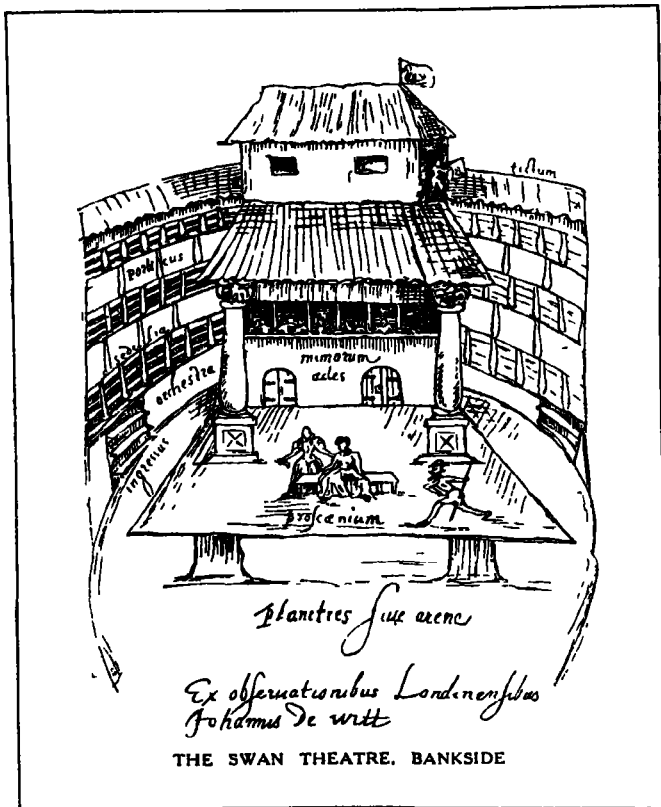 tectum
porticus
sedilia
orchestra
mimorum
ædes
ingressus
proscænium
planities siue arena
Ex observationibus Londinensibus
Johannis De Witt
THE SWAN THEATRE. BANKSIDE